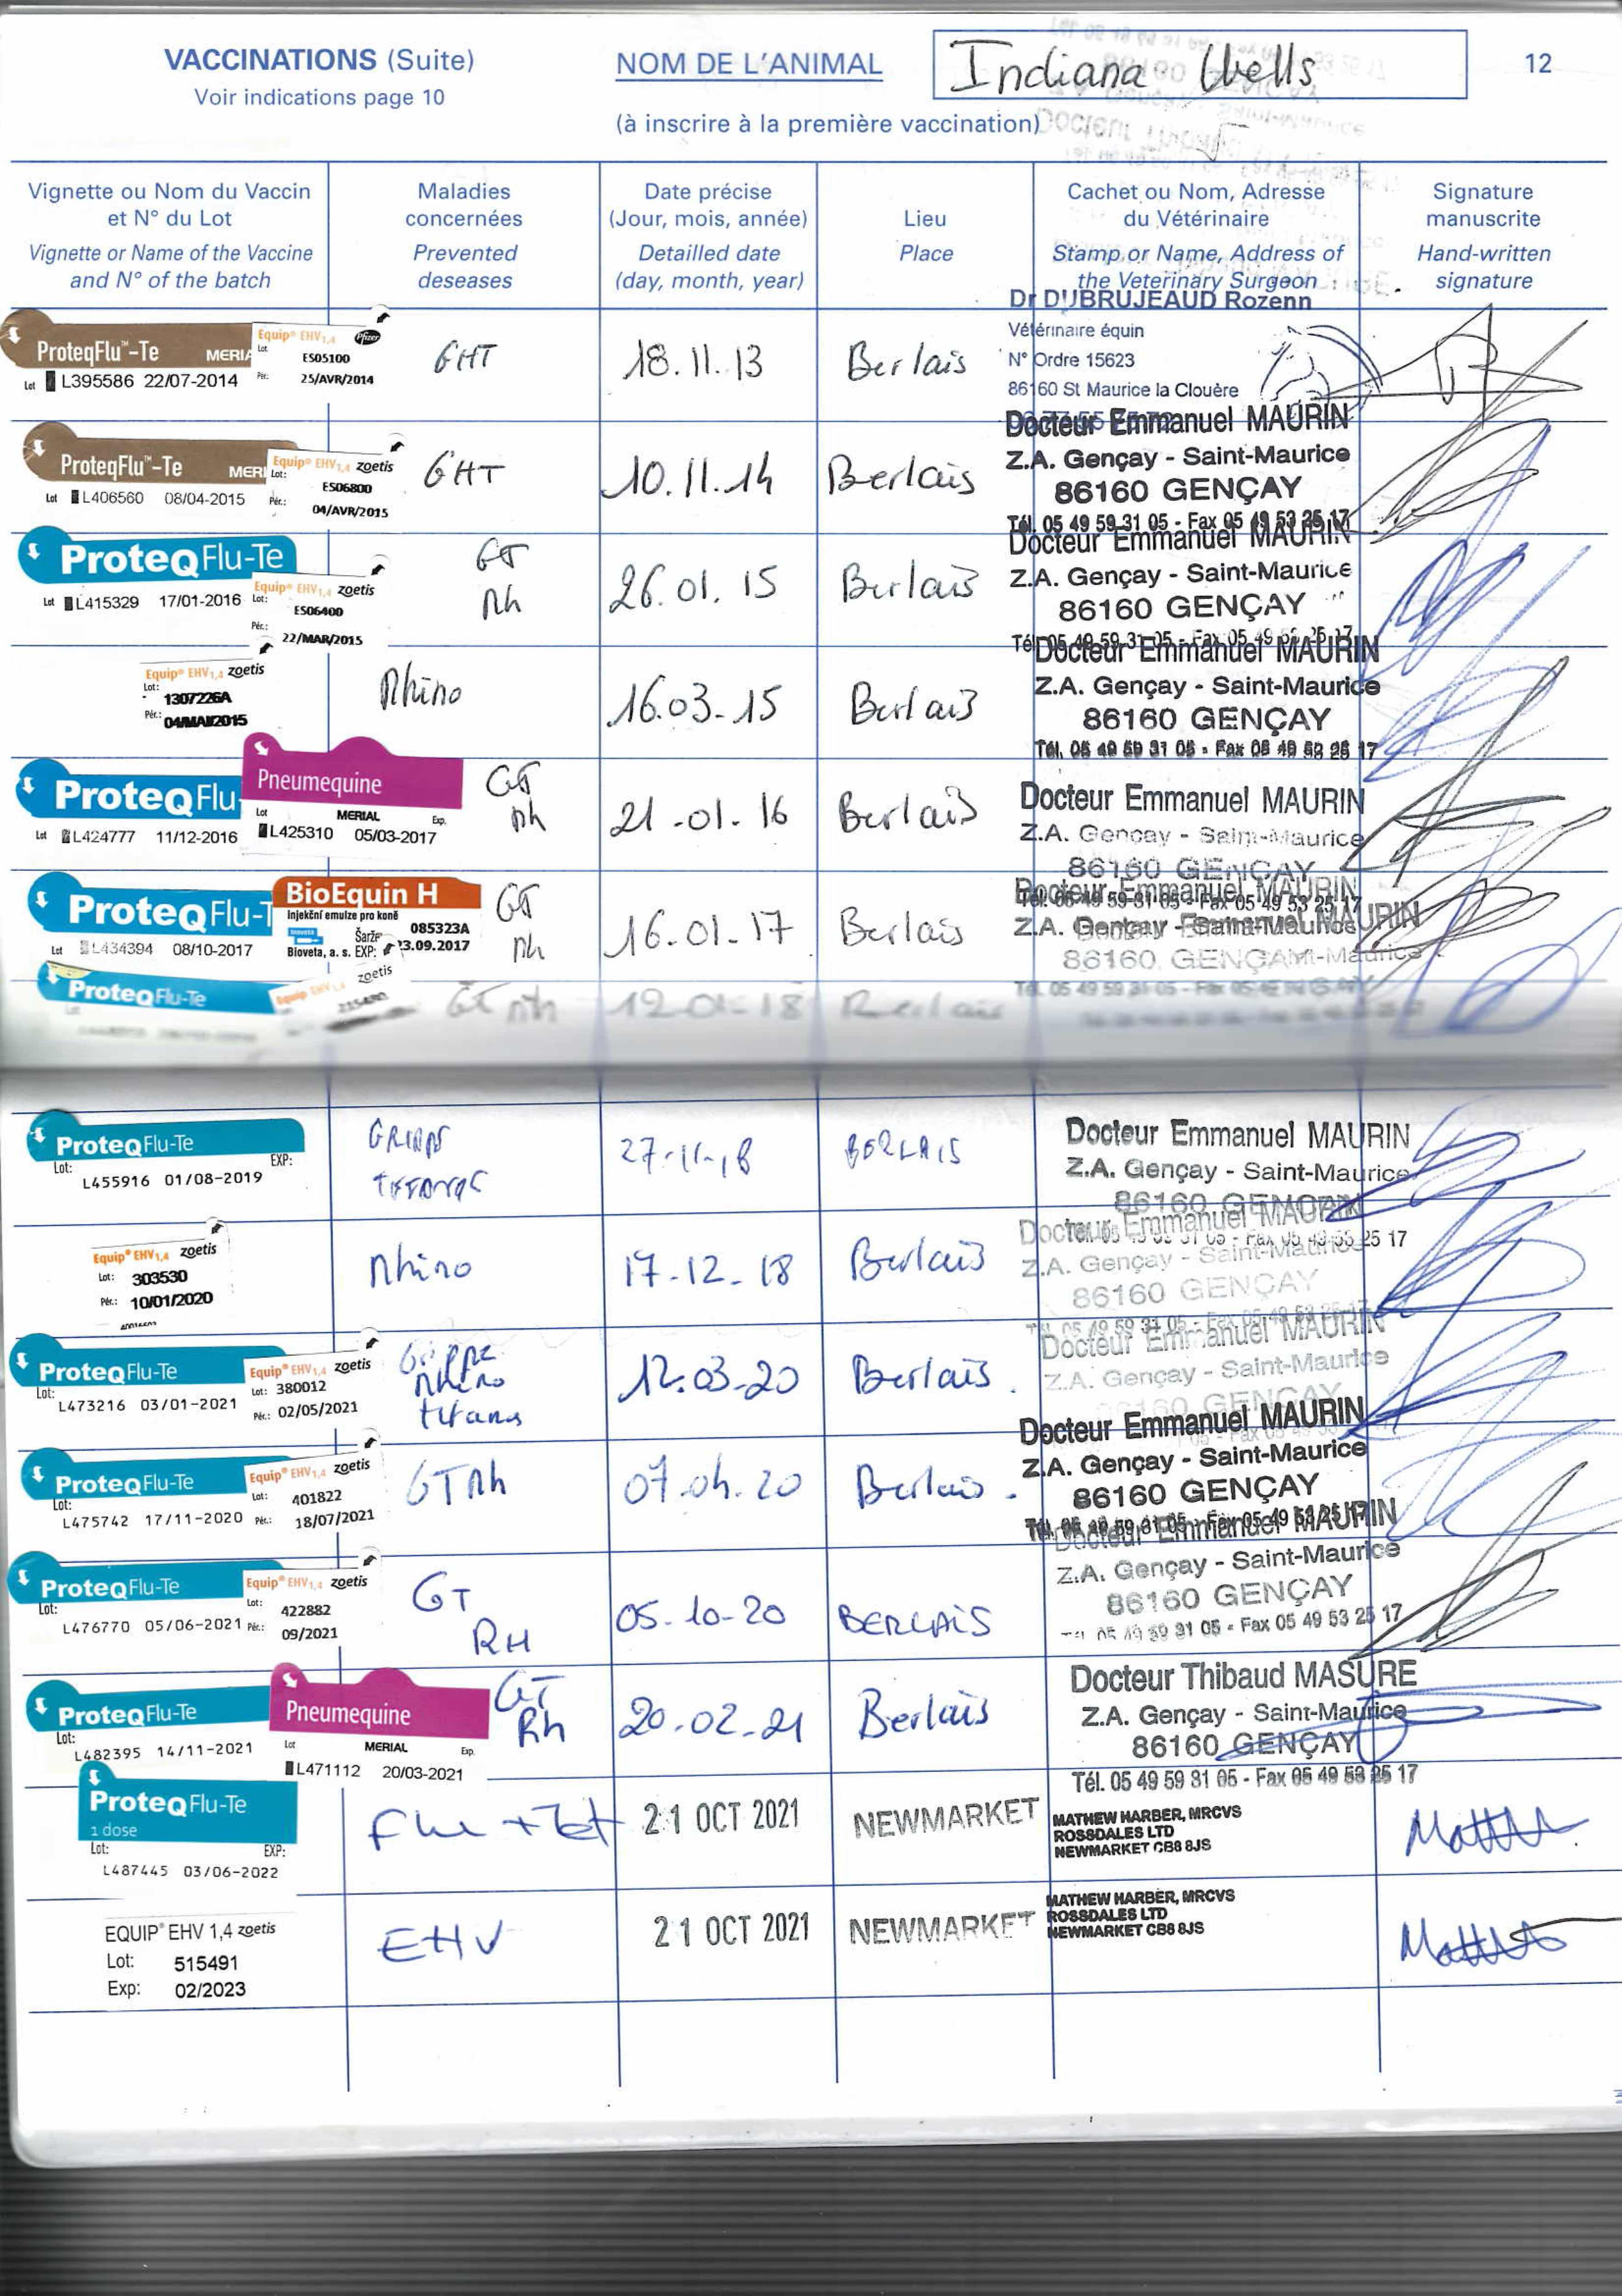 VACCINATIONS (Suite)
Voir indications page 10
NOM DE L'ANIMAL
Indiana Wells
(à inscrire à la première vaccination)
12
Vignette ou Nom du Vaccin
et N° du Lot
Vignette or Name of the Vaccine
and N° of the batch
Maladies
concernées
Prevented
deseases
Date précise
(Jour, mois, année)
Detailled date
(day, month, year)
Lieu
Place
Cachet ou Nom, Adresse
du Vétérinaire
Stamp or Name, Address of
the Veterinary Surgeon
Signature
manuscrite
Hand-written
signature
ProteqFlu™-Te MERIA
Lot L395586 22/07-2014
Equip® EHV1,4 Pfizer
Lot ES05100
Pér: 25/AVR/2014
GHT
18.11.13
Berlais
Dr DUBRUJEAUD Rozenn
Vétérinaire équin
N° Ordre 15623
86160 St Maurice la Clouère
ProteqFlu™-Te MERI
Lot L406560 08/04-2015
Equip® EHV1,4 zoetis
Lot: ES06800
Pér.: 04/AVR/2015
GHT
10.11.14
Berlais
Docteur Emmanuel MAURIN
Z.A. Gençay - Saint-Maurice
86160 GENÇAY
Tél. 05 49 59 31 05 - Fax 05 49 53 25 17
ProteqFlu-Te
Lot L415329 17/01-2016
Equip® EHV1,4 zoetis
Lot: ES06400
Pér.: 22/MAR/2015
GT
Rh
26.01.15
Berlais
Docteur Emmanuel MAURIN
Z.A. Gençay - Saint-Maurice
86160 GENÇAY
Tél. 05 49 59 31 05 - Fax 05 49 53 25 17
Equip® EHV1,4 zoetis
Lot: 1307226A
Pér.: 04/MAI/2015
Rhino
16.03.15
Berlais
Docteur Emmanuel MAURIN
Z.A. Gençay - Saint-Maurice
86160 GENÇAY
Tél. 05 49 59 31 05 - Fax 05 49 53 25 17
ProteqFlu
Lot L424777 11/12-2016
Pneumequine
Lot MERIAL Exp.
L425310 05/03-2017
GT
Rh
21.01.16
Berlais
Docteur Emmanuel MAURIN
Z.A. Gençay - Saint-Maurice
86160 GENÇAY
Tél. 05 49 59 31 05 - Fax 05 49 53 25 17
ProteqFlu-T
Lot L434394 08/10-2017
BioEquin H
Injekční emulze pro koně
bioveta Šarže 085323A
Bioveta, a. s. EXP: 23.09.2017
GT
Rh
16.01.17
Berlais
Docteur Emmanuel MAURIN
Z.A. Gençay - Saint-Maurice
86160 GENÇAY
Tél. 05 49 59 31 05
ProteqFlu-Te
Equip EHV1,4 zoetis
GT Rh
12.01.18
Berlais
ProteqFlu-Te
Lot: EXP:
L455916 01/08-2019
GRIPPE
TETANOS
27.11.18
BERLAIS
Docteur Emmanuel MAURIN
Z.A. Gençay - Saint-Maurice
86160 GENÇAY
Equip® EHV1,4 zoetis
Lot: 303530
Pér.: 10/01/2020
Rhino
17.12.18
Berlais
Docteur Emmanuel MAURIN
Z.A. Gençay - Saint-Maurice
86160 GENÇAY
Tél. 05 49 59 31 05 - Fax 05 49 53 25 17
ProteqFlu-Te
Lot:
L473216 03/01-2021
Equip® EHV1,4 zoetis
Lot: 380012
Pér.: 02/05/2021
Grippe
Rhino
tetanos
12.03.20
Berlais.
Docteur Emmanuel MAURIN
Z.A. Gençay - Saint-Maurice
86160 GENÇAY
ProteqFlu-Te
Lot:
L475742 17/11-2020
Equip® EHV1,4 zoetis
Lot: 401822
Pér.: 18/07/2021
GTRh
07.04.20
Berlais.
Docteur Emmanuel MAURIN
Z.A. Gençay - Saint-Maurice
86160 GENÇAY
Tél. 05 49 59 31 05 - Fax 05 49 53 25 17
ProteqFlu-Te
Lot:
L476770 05/06-2021
Equip® EHV1,4 zoetis
Lot: 422882
Pér.: 09/2021
GT
RH
05.10-20
BERLAIS
Docteur Emmanuel MAURIN
Z.A. Gençay - Saint-Maurice
86160 GENÇAY
Tél. 05 49 59 31 05 - Fax 05 49 53 25 17
ProteqFlu-Te
Lot:
L482395 14/11-2021
Pneumequine
Lot MERIAL Exp.
L471112 20/03-2021
GT
Rh
20.02.21
Berlais
Docteur Thibaud MASURE
Z.A. Gençay - Saint-Maurice
86160 GENÇAY
Tél. 05 49 59 31 05 - Fax 05 49 53 25 17
ProteqFlu-Te
1 dose
Lot: EXP:
L487445 03/06-2022
Flu + Tet
21 OCT 2021
NEWMARKET
MATHEW HARBER, MRCVS
ROSSDALES LTD
NEWMARKET CB8 8JS
EQUIP® EHV 1,4 zoetis
Lot: 515491
Exp: 02/2023
EHV
21 OCT 2021
NEWMARKET
MATHEW HARBER, MRCVS
ROSSDALES LTD
NEWMARKET CB8 8JS